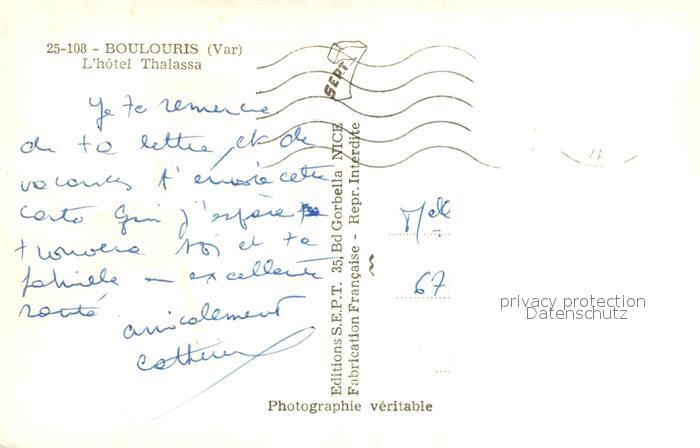 25-108 - BOULOURIS (Var)
L'hôtel Thalassa
Je te remercie
de ta lettre, et de
vacances t'envoie cette
carte qui j'espère
trouvera toi et ta
famille en excellente
santé
amicalement
SEPT
Editions S.E.P.T. 35, Bd Gorbella NICE
Fabrication Française - Repr. Interdite
Melle
67
privacy protection
Datenschutz
Photographie véritable